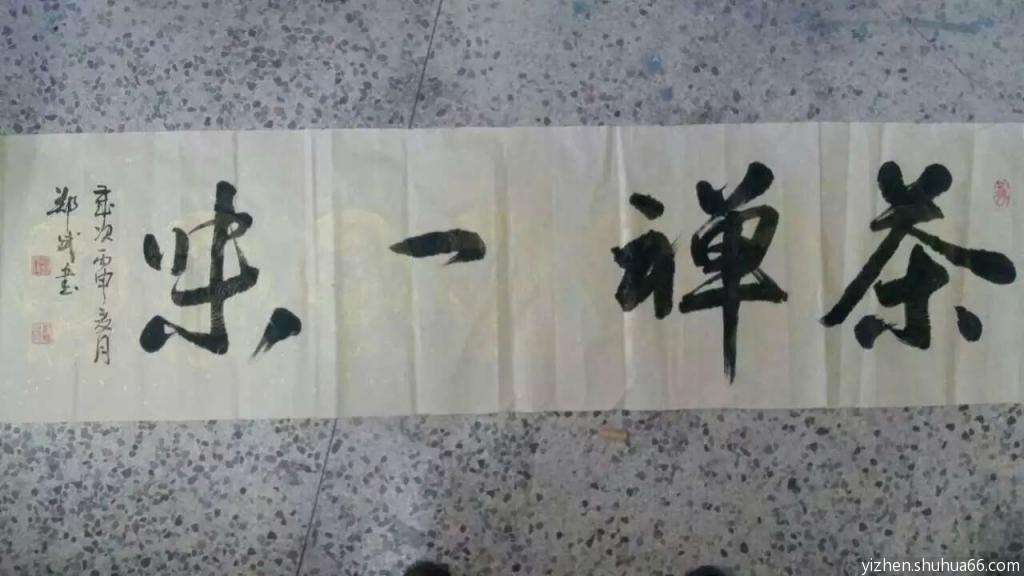 茶禅一味
岁次丙申夏月
郑武书
yizhen.shuhua66.com